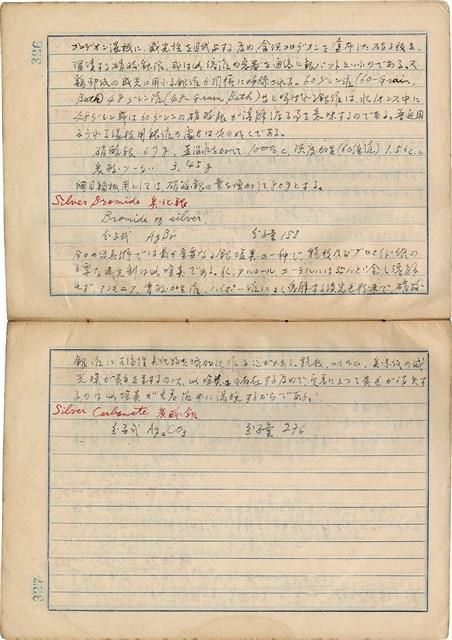 326
コロヂオン湿板に、感光性を賦与する為め、含沃コロヂオンを塗布した硝子板を、
浸漬する硝酸銀液、或は此溶液の容器を通俗に銀バットといふのである。又
鶏卵紙の感光に用ふる銀液も同様に称される。60グレン液(60-Grain
Bath) 48グレン液(48-Grain Bath)など呼ばれる銀液は、水1オンス中に
48グレン或は60グレンの硝酸銀が溶解せる事を意味するのである。普通用
ゐられる湿板用銀液の処方は次の如くである。
硝酸銀 69g. 蒸溜水を加へて 1000c.c.
を増加して80gとする。
Silver Bromide 臭化銀
Bromide of silver.
分子式 AgBr 分子量 188
今日の写真術では最も重要なる銀塩類の一種で、乾板及びブロマイド紙の
主要なる感光剤は此塩類である。水、アルコール、エーテルには殆んど全く溶解
せず、アンモニア、青酸加里液、ハイポー液によく溶解する淡黄色粉末で、硝酸
銀液に可溶性臭化物を添加して作ることが出来る。乾板、フィルム、臭素紙の感
光膜が黄色を呈するのは、此塩類の存在する為めで、定着によつて黄色が消失す
るのは此塩類が定着液中に溶解するからである。
Silver Carbonate 炭酸銀
分子式 Ag₂CO₃ 分子量 276
327